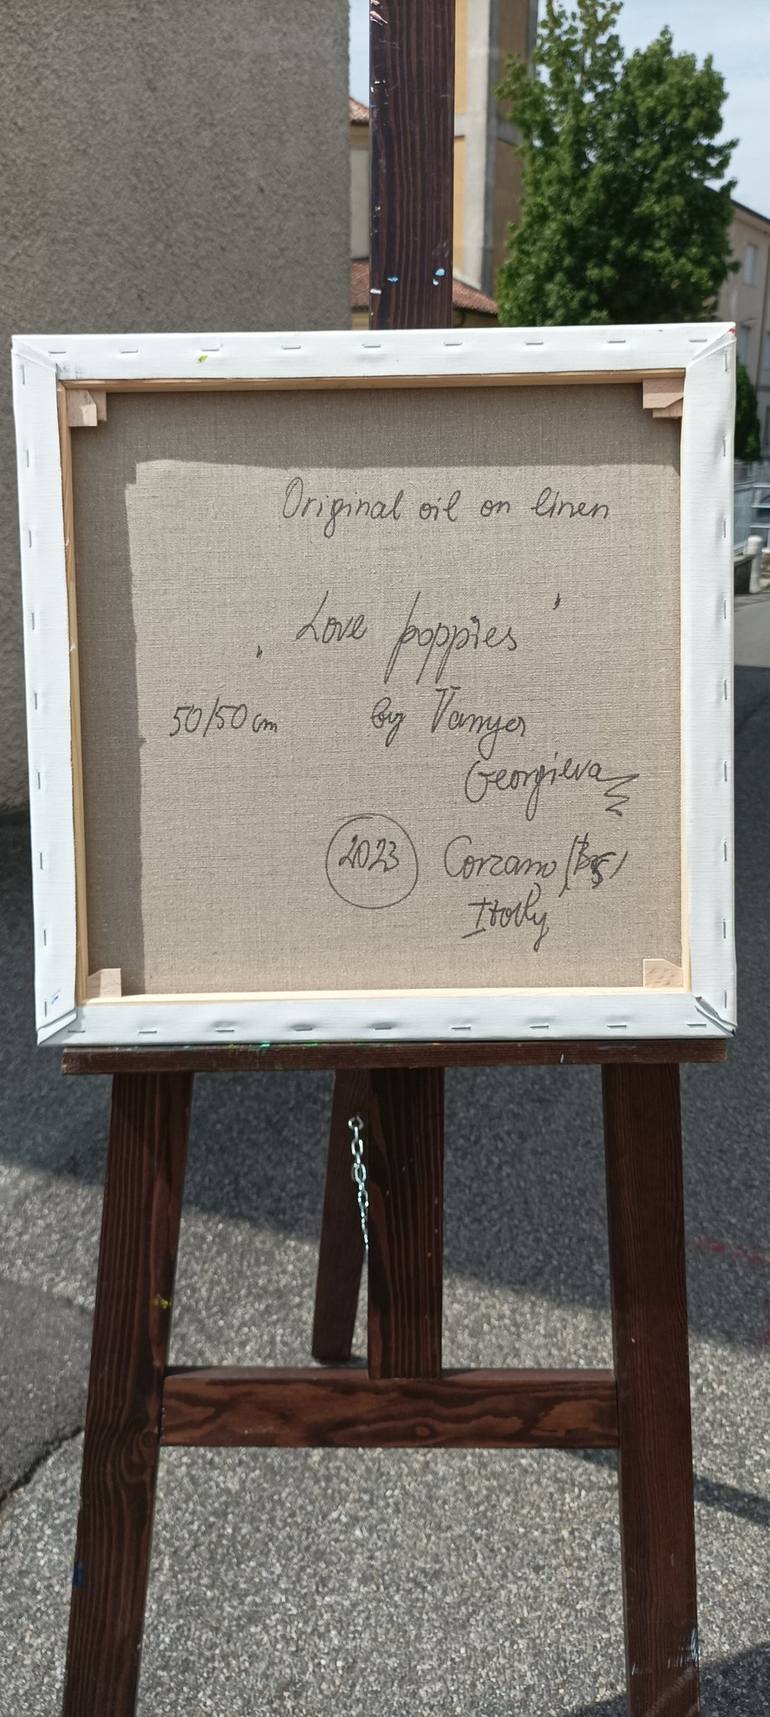 Original oil on linen
„Love poppies'
50/50 cm by Vanya
Georgieva
2023 Corzano (BS)
Italy